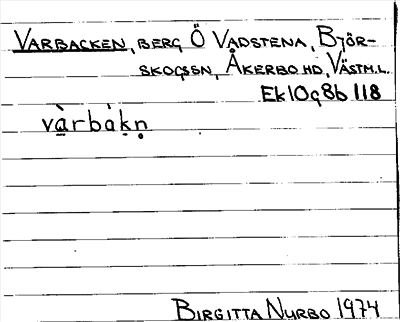 VARBACKEN, BERG Ö VADSTENA, BJÖR-
SKOGSSN, ÅKERBO HD, VÄSTM.L.
Ek 10g8b 118
vàrbákn
BIRGITTA NURBO 1974